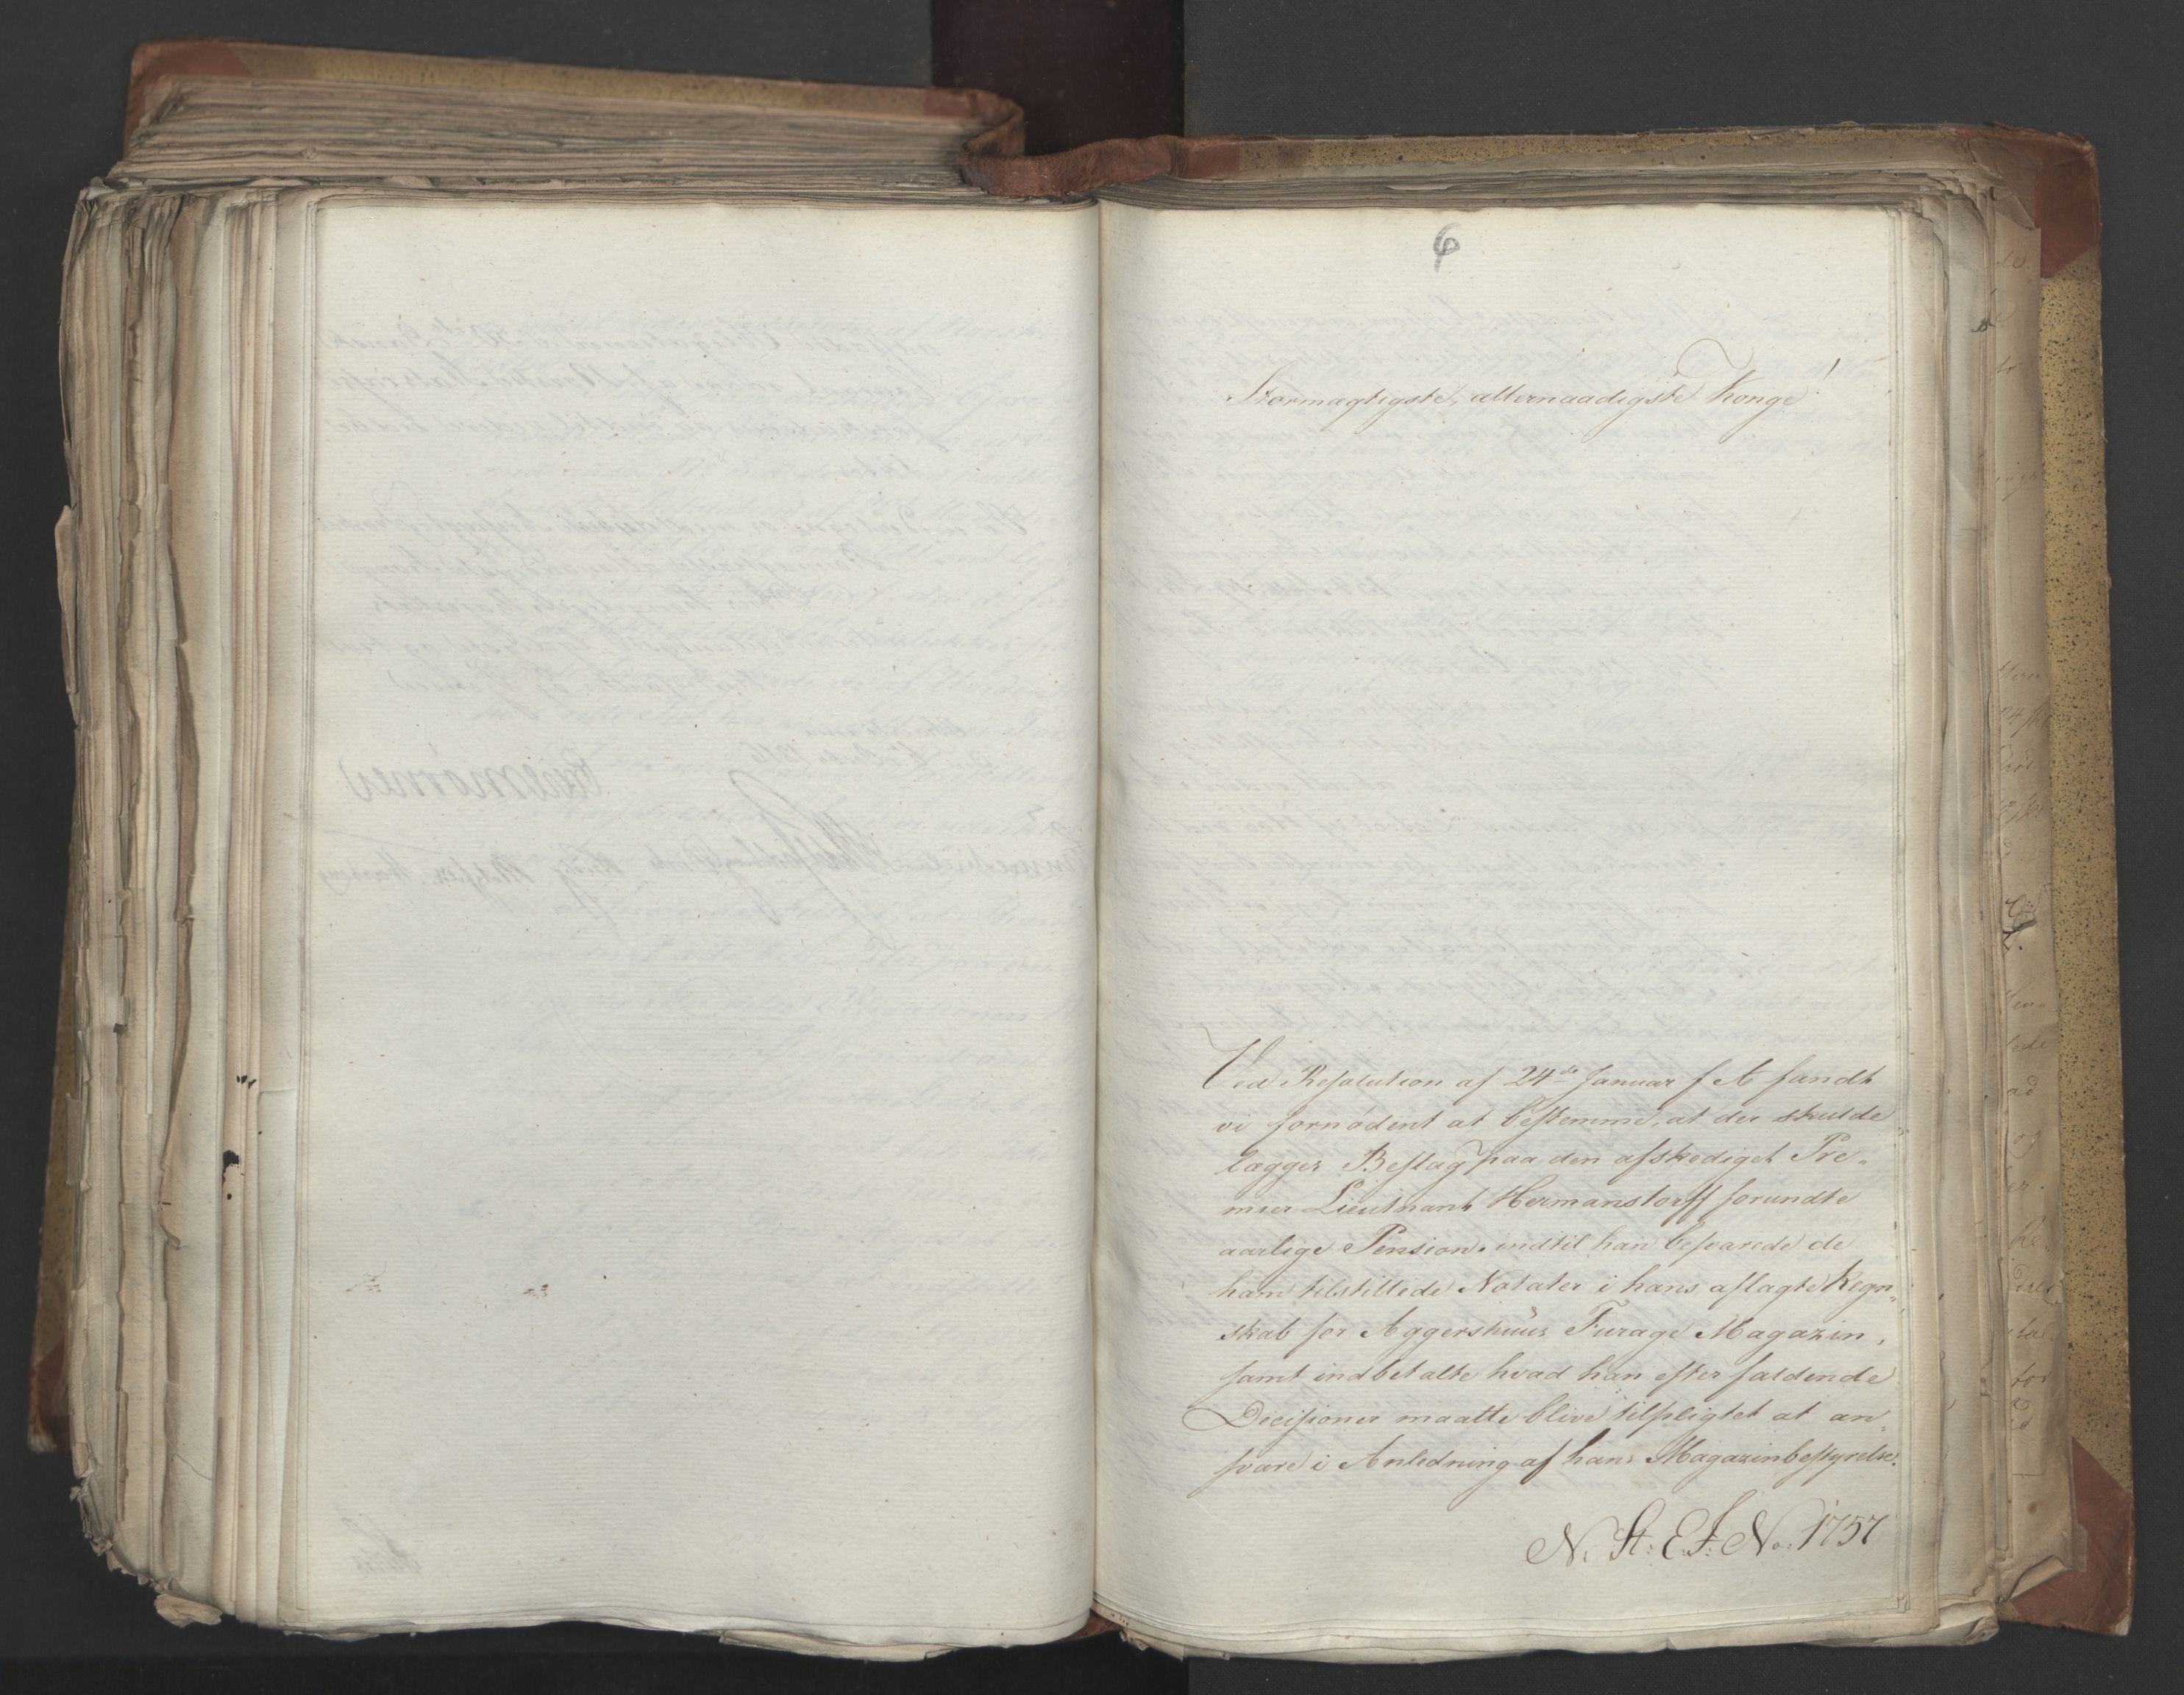 6
Stormægtigste, allernaadigste Konge!
Ved Resolution af 24de Januar f A fandt
vi fornødent at bestemme, at der skulde
lægges Beslag paa den afskediget Pre-
mier Lieutnant Hermanstorff forundte
aarlige Pension, indtil han besvarede de
ham tilstillede Notater i hans aflagte Regn-
skab for Aggershuus Furage Magazin,
samt indbetalte hvad han efter faldende
Decisioner maatte blive tilpligtet at an-
svare i Anledning af hans Magazinbestyrelse.
N. St: E. J: No. 1757